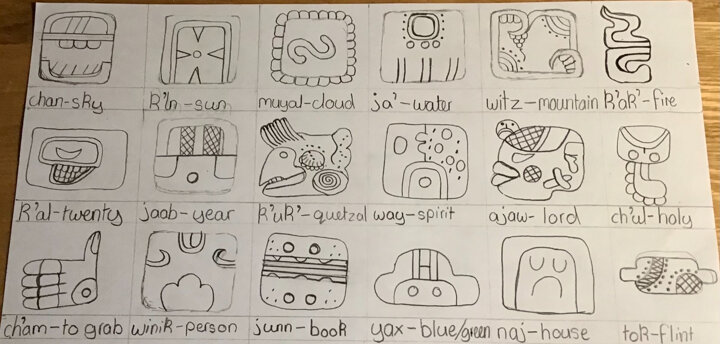 chan-sky k'in-sun muyal-cloud ja'-water witz-mountain k'ak'-fire
k'al-twenty jaab-year k'uk'-quetzal way-spirit ajaw-lord ch'ul-holy
ch'am-to grab winik-person juun-book yax-blue/green naj-house tok-flint